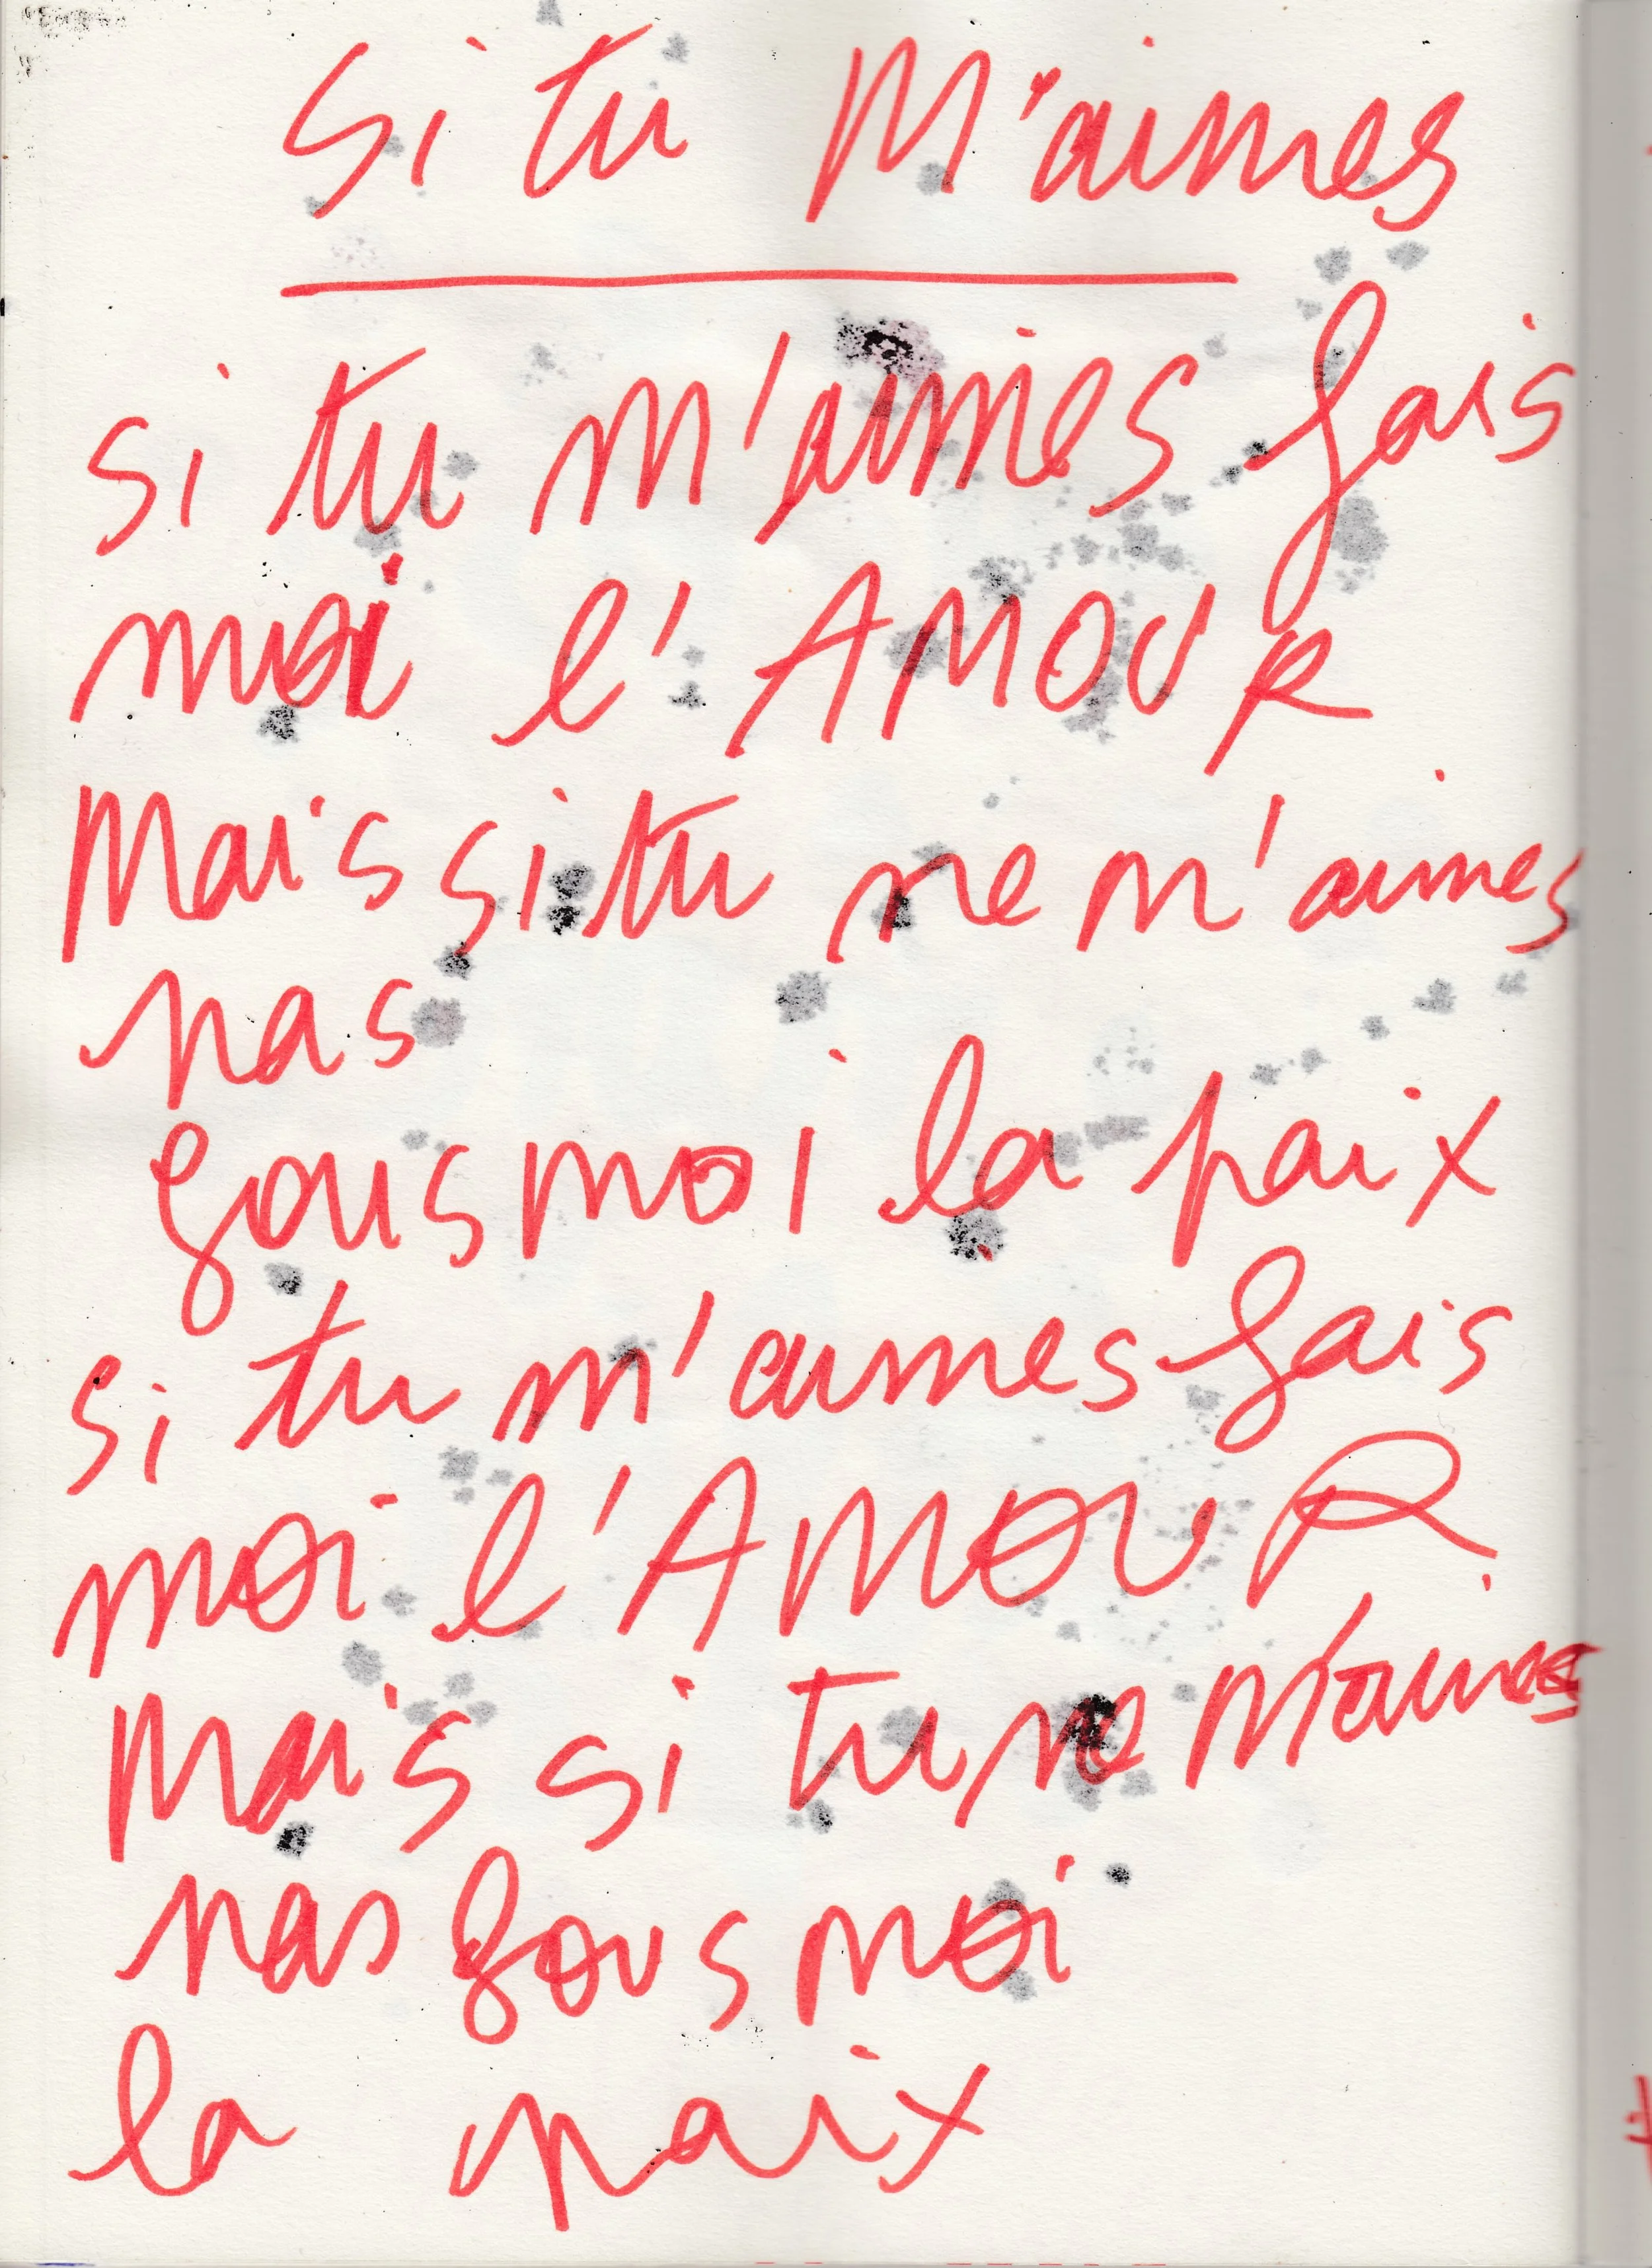 si tu M'aimes
si tu m'aimes fais
moi l'AMOUR
Mais si tu ne m'aimes
pas
fous moi la paix
si tu m'aimes fais
moi l'AMOUR
Mais si tu ne m'aimes
pas fous moi
la paix